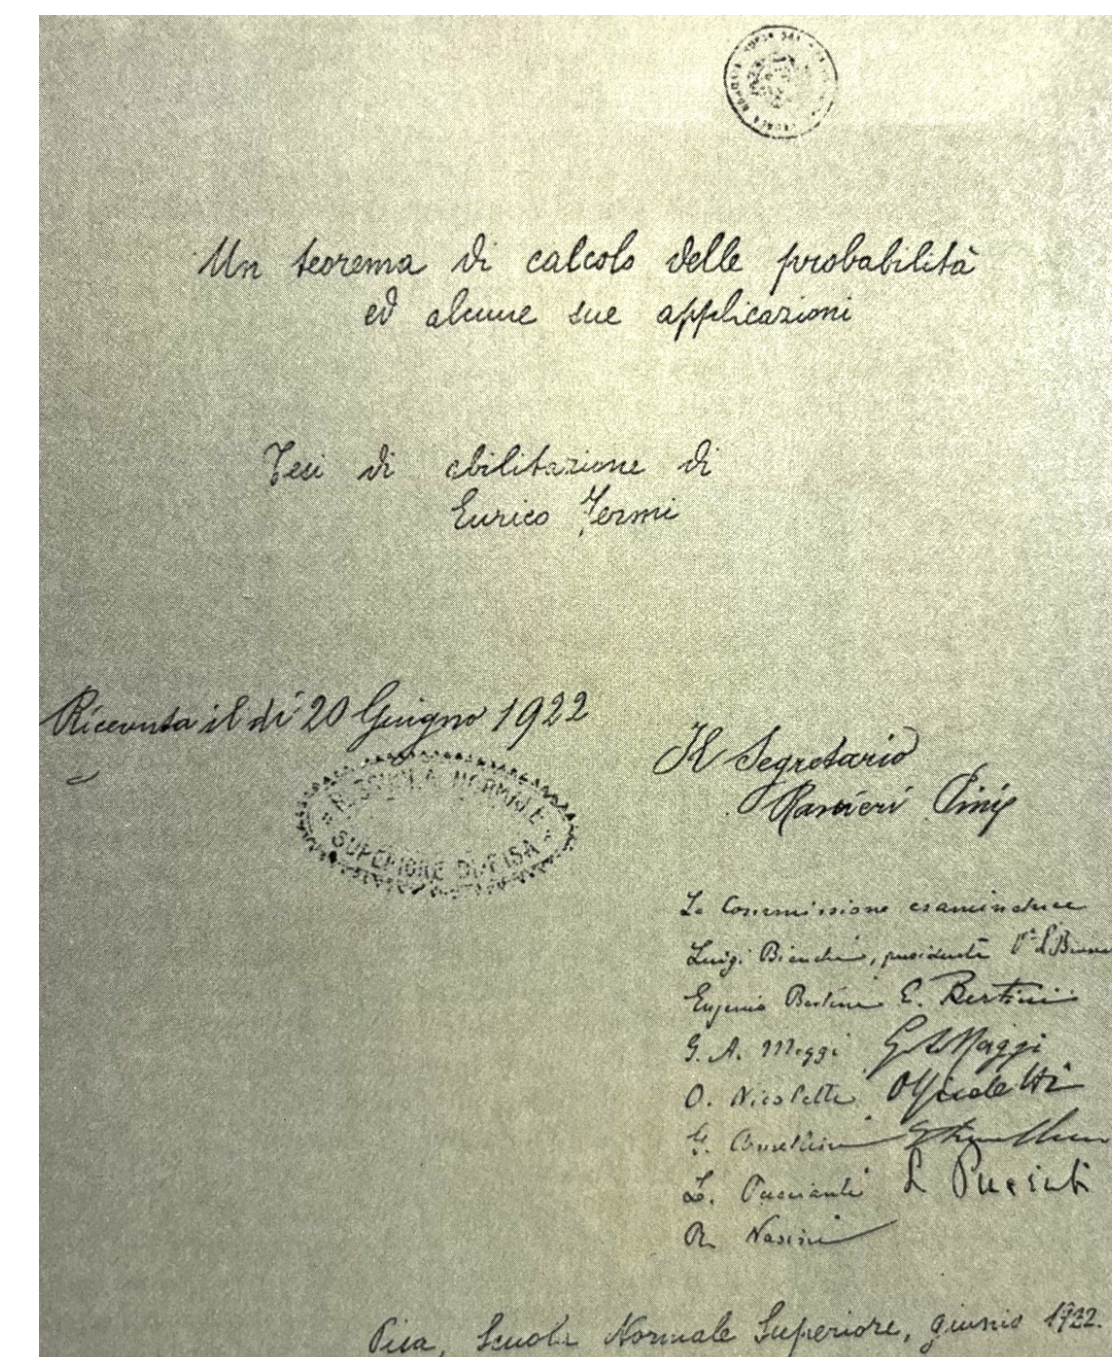 Un teorema di calcolo delle probabilità
ed alcune sue applicazioni
Tesi di abilitazione di
Enrico Fermi
Ricevuta il dì 20 Giugno 1922
R. SCUOLA NORMALE
SUPERIORE DI PISA
Il Segretario
Ranieri Pini
La Commissione esaminatrice
Luigi Bianchi, presidente
Eugenio Bertini E. Bertini
G. A. Maggi G A Maggi
O. Nicoletti O Nicoletti
G.
L. Puccianti L Puccianti
R. Nasini
Pisa, Scuola Normale Superiore, giugno 1922.